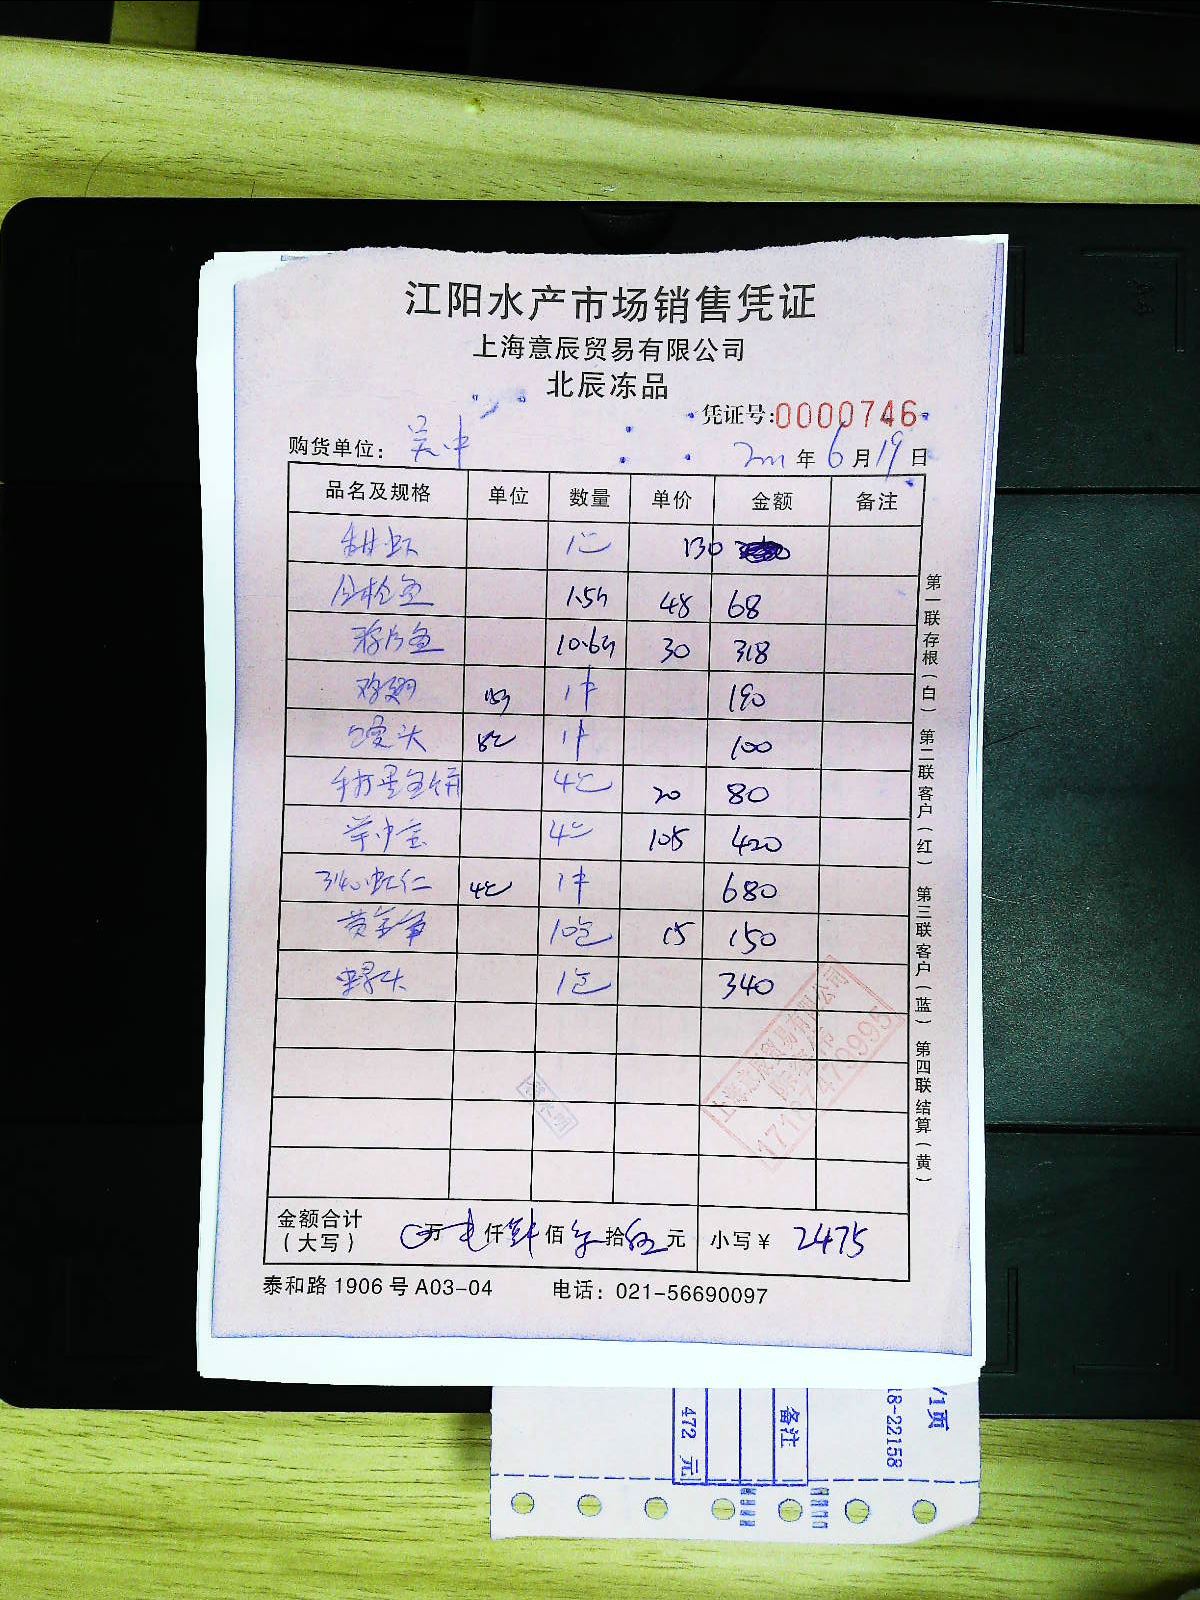 江阳水产市场销售凭证
上海意辰贸易有限公司
北辰冻品
凭证号:0000746
购货单位: 吴中 年 6 月 19 日
品名及规格 单位 数量 单价 金额 备注
甜虾 1 130
金枪鱼 1.5 48 68
鱼 10.6 30 318
鸡翅 1件 190
馒头 1件 100
手打墨鱼饼 4 20 80
4 105 420
3140虾仁 1件 680
黄金 10包 15 150
螺头 1包 340
金额合计
(大写) 万 仟 佰 拾 伍 元 小写¥ 2475
泰和路1906号A03-04 电话: 021-56690097
第一联存根(白) 第二联客户(红) 第三联客户(蓝) 第四联结算(黄)
上海意辰贸易有限公司
/1页
18-22158
备注
472 元